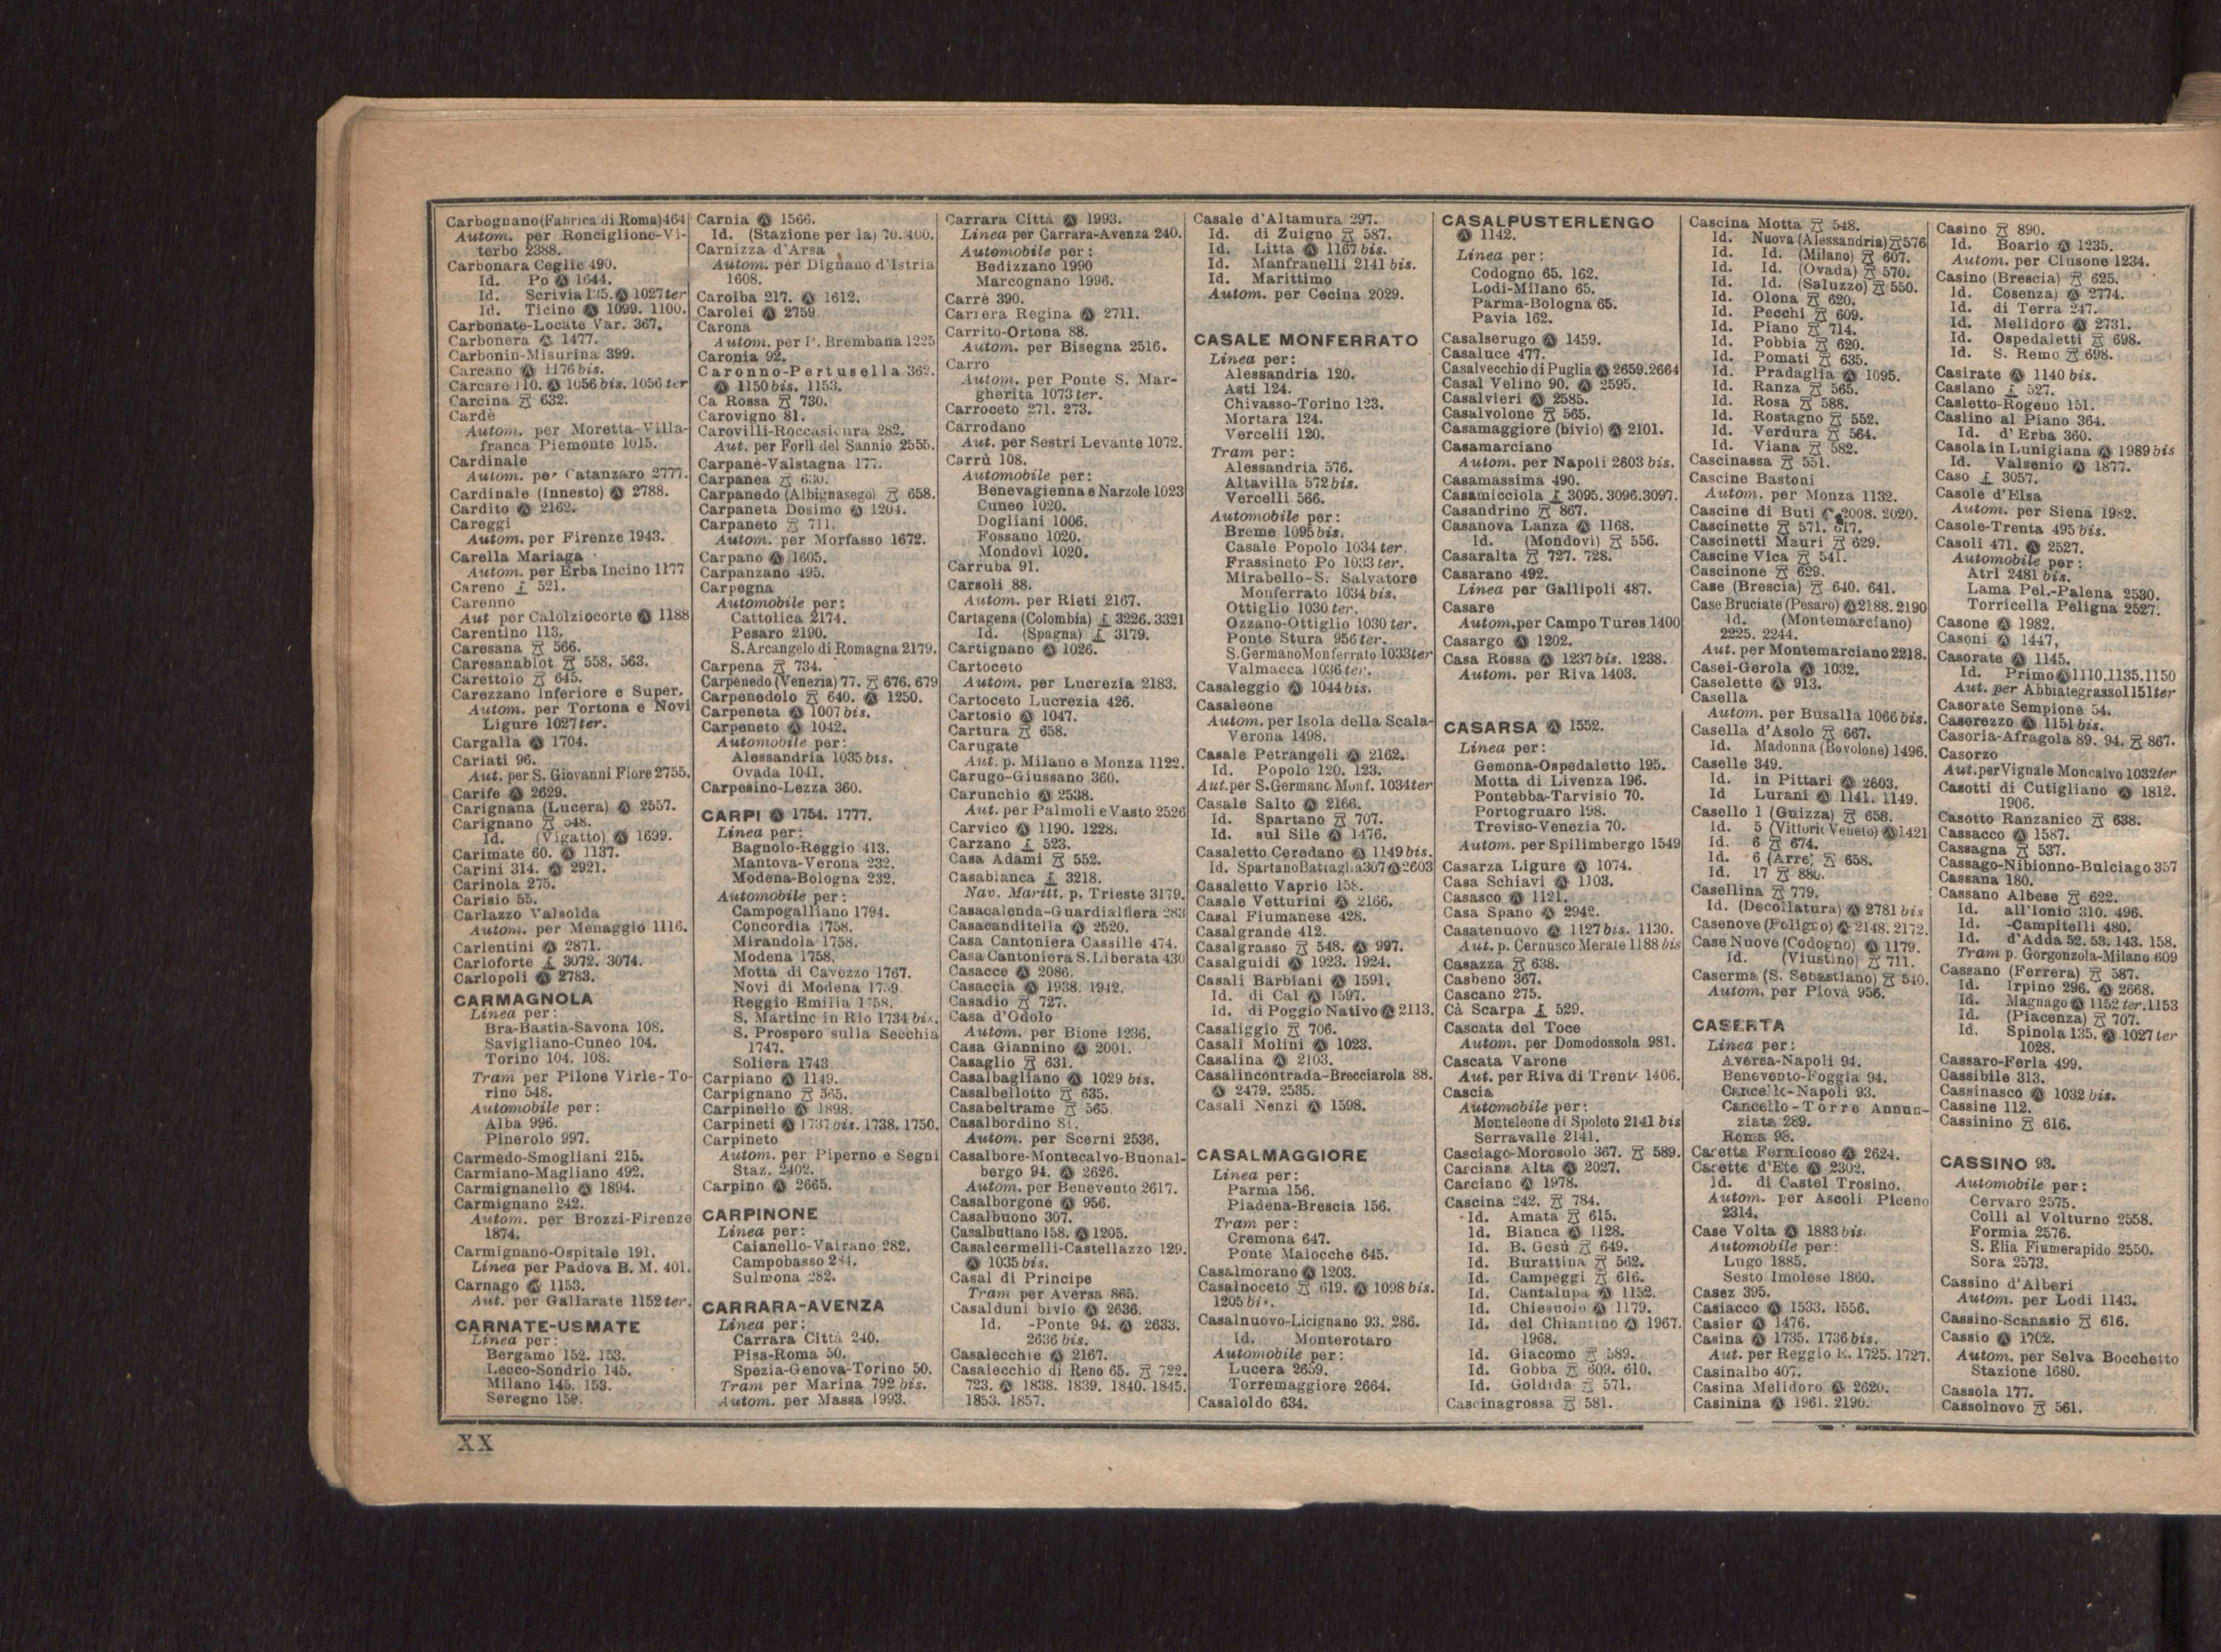 Carbognano (Fabrica di Roma) 464
Autom. per Ronciglione-Vi-
terbo 2388.
Carbonara Ceglie 490.
Id. Po Ⓐ 1644.
Id. Scrivia 135. Ⓐ 1027 ter
Id. Ticino Ⓐ 1099. 1100.
Carbonate-Locate Var. 367.
Carbonera Ⓐ 1477.
Carbonin-Misurina 399.
Carcano Ⓐ 1176 bis.
Carcare 110. Ⓐ 1056 bis. 1056 ter
Carcina 632.
Cardè
Autom. per Moretta-Villa-
franca Piemonte 1015.
Cardinale
Autom. per Catanzaro 2777.
Cardinale (Innesto) Ⓐ 2788.
Cardito Ⓐ 2162.
Careggi
Autom. per Firenze 1943.
Carella Mariaga
Autom. per Erba Incino 1177
Careno 521.
Carenno
Aut per Calolziocorte Ⓐ 1188
Carentino 113.
Caresana 566.
Caresanablot 558. 563.
Carettolo 645.
Carezzano Inferiore e Super.
Autom. per Tortona e Novi
Ligure 1027 ter.
Cargalla Ⓐ 1704.
Cariati 96.
Aut. per S. Giovanni Fiore 2755.
Carife Ⓐ 2629.
Carignana (Lucera) Ⓐ 2557.
Carignano 548.
Id. (Vigatto) Ⓐ 1699.
Carimate 60. Ⓐ 1137.
Carini 314. Ⓐ 2921.
Carinola 275.
Carisio 55.
Carlazzo Valsolda
Autom. per Menaggio 1116.
Carlentini Ⓐ 2871.
Carloforte 3072. 3074.
Carlopoli Ⓐ 2783.
CARMAGNOLA
Linea per:
Bra-Bastia-Savona 108.
Savigliano-Cuneo 104.
Torino 104. 108.
Tram per Pilone Virle-To-
rino 548.
Automobile per:
Alba 996.
Pinerolo 997.
Carmedo-Smogliani 215.
Carmiano-Magliano 492.
Carmignanello Ⓐ 1894.
Carmignano 242.
Autom. per Brozzi-Firenze
1874.
Carmignano-Ospitale 191.
Linea per Padova B. M. 401.
Carnago Ⓐ 1153.
Aut. per Gallarate 1152 ter.
CARNATE-USMATE
Linea per:
Bergamo 152. 153.
Lecco-Sondrio 145.
Milano 145. 153.
Seregno
Carnia Ⓐ 1566.
Id. (Stazione per la) 70. 400.
Carnizza d'Arsa
Autom. per Dignano d'Istria
1608.
Caroiba 217. Ⓐ 1612.
Carolei Ⓐ 2759
Carona
Autom. per P. Brembana 1225
Caronia 92.
Caronno-Pertusella 362.
Ⓐ 1150 bis. 1153.
Ca Rossa 730.
Carovigno 81.
Carovilli-Roccasicura 282.
Aut. per Forlì del Sannio 2555.
Carpanè-Valstagna 177.
Carpanea 630.
Carpanedo (Albignasego) 658.
Carpaneta Dosimo Ⓐ 1204.
Carpaneto 711.
Autom. per Morfasso 1672.
Carpano Ⓐ 1605.
Carpanzano 495.
Carpegna
Automobile per:
Cattolica 2174.
Pesaro 2190.
S. Arcangelo di Romagna 2179.
Carpena 734.
Carpenedo (Venezia) 77. 676. 679
Carpenedolo 640. Ⓐ 1250.
Carpeneta Ⓐ 1007 bis.
Carpeneto Ⓐ 1042.
Automobile per:
Alessandria 1035 bis.
Ovada 1041.
Carpesino-Lezza 360.
CARPI Ⓐ 1754. 1777.
Linea per:
Bagnolo-Reggio 413.
Mantova-Verona 232.
Modena-Bologna 232.
Automobile per:
Campogalliano 1794.
Concordia 1758.
Mirandola 1758.
Modena 1758.
Motta di Cavezzo 1767.
Novi di Modena 1759.
Reggio Emilia 1758.
S. Martino in Rio 1734 bis.
S. Prospero sulla Secchia
1747.
Soliera 1743
Carpiano Ⓐ 1149.
Carpignano 565.
Carpinello Ⓐ 1898.
Carpineti Ⓐ 1737 bis. 1738. 1750.
Carpineto
Autom. per Piperno e Segni
Staz. 2402.
Carpino Ⓐ 2665.
CARPINONE
Linea per:
Caianello-Vairano 282.
Campobasso 284.
Sulmona 282.
CARRARA-AVENZA
Linea per:
Carrara Città 240.
Pisa-Roma 50.
Spezia-Genova-Torino 50.
Tram per Marina 792 bis.
Autom. per Massa 1993.
Carrara Città Ⓐ 1993.
Linea per Carrara-Avenza 240.
Automobile per:
Bedizzano 1990
Marcognano 1996.
Carrè 390.
Carrera Regina Ⓐ 2711.
Carrito-Ortona 88.
Autom. per Bisegna 2516.
Carro
Autom. per Ponte S. Mar-
gherita 1073 ter.
Carroceto 271. 273.
Carrodano
Aut. per Sestri Levante 1072.
Carrù 108.
Automobile per:
Benevagienna e Narzole 1023
Cuneo 1020.
Dogliani 1006.
Fossano 1020.
Mondovì 1020.
Carruba 91.
Carsoli 88.
Autom. per Rieti 2167.
Cartagena (Colombia) 3226. 3321
Id. (Spagna) 3179.
Cartignano Ⓐ 1026.
Cartoceto
Autom. per Lucrezia 2183.
Cartoceto Lucrezia 426.
Cartosio Ⓐ 1047.
Cartura 658.
Carugate
Aut. p. Milano e Monza 1122.
Carugo-Giussano 360.
Carunchio Ⓐ 2538.
Aut. per Palmoli e Vasto 2526
Carvico Ⓐ 1190. 1228.
Carzano 523.
Casa Adami 552.
Casablanca 3218.
Nav. Maritt. p. Trieste 3179.
Casacalenda-Guardialfiera 283
Casacanditella Ⓐ 2520.
Casa Cantoniera Cassille 474.
Casa Cantoniera S. Liberata 430
Casacce Ⓐ 2086.
Casaccia Ⓐ 1938. 1942.
Casadio 727.
Casa d'Odolo
Autom. per Bione 1236.
Casa Giannino Ⓐ 2001.
Casaglio 631.
Casalbagliano Ⓐ 1029 bis.
Casalbellotto 635.
Casabeltrame 565
Casalbordino 81.
Autom. per Scerni 2536.
Casalbore-Montecalvo-Buonal-
bergo 94. Ⓐ 2626.
Autom. per Benevento 2617.
Casalborgone Ⓐ 956.
Casalbuono 307.
Casalbuttano 158. Ⓐ 1205.
Casalcermelli-Castellazzo 129.
Ⓐ 1035 bis.
Casal di Principe
Tram per Aversa 865.
Casalduni bivio Ⓐ 2636.
Id. -Ponte 94. Ⓐ 2633.
2636 bis.
Casalecchie Ⓐ 2167.
Casalecchio di Reno 65. 722.
723. Ⓐ 1838. 1839. 1840. 1845.
1853. 1857.
Casale d'Altamura 297.
Id. di Zuigno 587.
Id. Litta Ⓐ 1167 bis.
Id. Manfranelli 2141 bis.
Id. Marittimo
Autom. per Cecina 2029.
CASALE MONFERRATO
Linea per:
Alessandria 120.
Asti 124.
Chivasso-Torino 123.
Mortara 124.
Vercelli 120.
Tram per:
Alessandria 576.
Altavilla 572 bis.
Vercelli 566.
Automobile per:
Breme 1095 bis.
Casale Popolo 1034 ter.
Frassineto Po 1033 ter.
Mirabello-S. Salvatore
Monferrato 1034 bis.
Ottiglio 1030 ter.
Ozzano-Ottiglio 1030 ter.
Ponte Stura 956 ter.
S. Germano Monferrato 1033 ter
Valmacca 1036 ter.
Casaleggio Ⓐ 1044 bis.
Casaleone
Autom. per Isola della Scala-
Verona 1498.
Casale Petrangeli Ⓐ 2162.
Id. Popolo 120. 123.
Aut. per S. Germano Monf. 1034 ter
Casale Salto Ⓐ 2166.
Id. Spartano 707.
Id. sul Sile Ⓐ 1476.
Casaletto Ceredano Ⓐ 1149 bis.
Id. Spartano Battaglia 307 Ⓐ 2603
Casaletto Vaprio 158.
Casale Vetturini Ⓐ 2166.
Casal Fiumanese 428.
Casalgrande 412.
Casalgrasso 548. Ⓐ 997.
Casalguidi Ⓐ 1923. 1924.
Casali Barbiani Ⓐ 1591.
Id. di Cal Ⓐ 1597.
Id. di Poggio Nativo Ⓐ 2113.
Casaliggio 706.
Casali Molini Ⓐ 1023.
Casalina Ⓐ 2103.
Casalincontrada-Brecciarola 88.
Ⓐ 2479. 2535.
Casali Nenzi Ⓐ 1598.
CASALMAGGIORE
Linea per:
Parma 156.
Piadena-Brescia 156.
Tram per:
Cremona 647.
Ponte Maiocche 645.
Casalmorano Ⓐ 1203.
Casalnoceto 619. Ⓐ 1098 bis.
1205 bis.
Casalnuovo-Licignano 93. 286.
Id. Monterotaro
Automobile per:
Lucera 2659.
Torremaggiore 2664.
Casaloldo 634.
CASALPUSTERLENGO
Ⓐ 1142.
Linea per:
Codogno 65. 162.
Lodi-Milano 65.
Parma-Bologna 65.
Pavia 162.
Casalserugo Ⓐ 1459.
Casaluce 477.
Casalvecchio di Puglia Ⓐ 2659. 2664
Casal Velino 90. Ⓐ 2595.
Casalvieri Ⓐ 2585.
Casalvolone 565.
Casamaggiore (bivio) Ⓐ 2101.
Casamarciano
Autom. per Napoli 2603 bis.
Casamassima 490.
Casamicciola 3095. 3096. 3097.
Casandrino 867.
Casanova Lanza Ⓐ 1168.
Id. (Mondovì) 556.
Casaralta 727. 728.
Casarano 492.
Linea per Gallipoli 487.
Casare
Autom. per Campo Tures 1400
Casargo Ⓐ 1202.
Casa Rossa Ⓐ 1237 bis. 1238.
Autom. per Riva 1403.
CASARSA Ⓐ 1552.
Linea per:
Gemona-Ospedaletto 195.
Motta di Livenza 196.
Pontebba-Tarvisio 70.
Portogruaro 198.
Treviso-Venezia 70.
Autom. per Spilimbergo 1549
Casarza Ligure Ⓐ 1074.
Casa Schiavi Ⓐ 1103.
Casasco Ⓐ 1121.
Casa Spano Ⓐ 2942.
Casatenuovo Ⓐ 1127 bis. 1130.
Aut. p. Cernusco Merate 1188 bis
Casazza 638.
Casbeno 367.
Cascano 275.
Cà Scarpa 529.
Cascata del Toce
Autom. per Domodossola 981.
Cascata Varone
Aut. per Riva di Trento 1406.
Cascia
Automobile per:
Monteleone di Spoleto 2141 bis
Serravalle 2141.
Casciago-Morosolo 367. 589.
Casciana Alta Ⓐ 2027.
Casciano Ⓐ 1978.
Cascina 242. 784.
Id. Amata 615.
Id. Bianca Ⓐ 1128.
Id. B. Gesù 649.
Id. Burattina 562.
Id. Campeggi 616.
Id. Cantalupa Ⓐ 1152.
Id. Chiesuolo Ⓐ 1179.
Id. del Chiantino Ⓐ 1967.
1968.
Id. Giacomo 589.
Id. Gobba 609. 610.
Id. Goldida 571.
Cascinagrossa 581.
Cascina Motta 548.
Id. Nuova (Alessandria) 576
Id. Id. (Milano) 607.
Id. Id. (Ovada) 570.
Id. Id. (Saluzzo) 550.
Id. Olona 620.
Id. Pecchi 609.
Id. Piano 714.
Id. Pobbia 620.
Id. Pomati 635.
Id. Pradaglia Ⓐ 1095.
Id. Ranza 565.
Id. Rosa 588.
Id. Rostagno 552.
Id. Verdura 564.
Id. Viana 582.
Cascinassa 551.
Cascine Bastoni
Autom. per Monza 1132.
Cascine di Buti Ⓐ 2008. 2020.
Cascinette 571. 617.
Cascinetti Mauri 629.
Cascine Vica 541.
Cascinone 629.
Case (Brescia) 640. 641.
Case Bruciate (Pesaro) Ⓐ 2188. 2190
Id. (Montemarciano)
2225. 2244.
Aut. per Montemarciano 2218.
Casei-Gerola Ⓐ 1032.
Caselette Ⓐ 913.
Casella
Autom. per Busalla 1066 bis.
Casella d'Asolo 667.
Id. Madonna (Bovolone) 1496.
Caselle 349.
Id. in Pittari Ⓐ 2603.
Id Lurani Ⓐ 1141. 1149.
Casello 1 (Guizza) 658.
Id. 5 (Vittorio Veneto) Ⓐ 1421
Id. 6 674.
Id. 6 (Arre) 658.
Id. 17 886.
Casellina 779.
Id. (Decollatura) Ⓐ 2781 bis
Casenove (Foligno) Ⓐ 2148. 2172.
Case Nuove (Codogno) Ⓐ 1179.
Id. (Viustino) 711.
Caserma (S. Sebastiano) 540.
Autom. per Piovà 956.
CASERTA
Linea per:
Aversa-Napoli 94.
Benevento-Foggia 94.
Cancello-Napoli 93.
Cancello-Torre Annun-
ziata 289.
Roma 93.
Casetta Formicoso Ⓐ 2624.
Casette d'Ete Ⓐ 2302.
Id. di Castel Trosino.
Autom. per Ascoli Piceno
2314.
Case Volta Ⓐ 1883 bis
Automobile per:
Lugo 1885.
Sesto Imolese 1860.
Casez 395.
Casiacco Ⓐ 1533. 1556.
Casier Ⓐ 1476.
Casina Ⓐ 1735. 1736 bis.
Aut. per Reggio E. 1725. 1727.
Casinalbo 407.
Casina Melidoro Ⓐ 2620.
Casinina Ⓐ 1961. 2190.
Casino 890.
Id. Boario Ⓐ 1235.
Autom. per Clusone 1234.
Casino (Brescia) 625.
Id. Cosenza) Ⓐ 2774.
Id. di Terra 247.
Id. Melidoro Ⓐ 2731.
Id. Ospedaletti 698.
Id. S. Remo 698.
Casirate Ⓐ 1140 bis.
Caslano 527.
Casletto-Rogeno 151.
Caslino al Piano 364.
Id. d'Erba 360.
Casola in Lunigiana Ⓐ 1989 bis
Id. Valsenio Ⓐ 1877.
Caso 3057.
Casole d'Elsa
Autom. per Siena 1982.
Casole-Trenta 495 bis.
Casoli 471. Ⓐ 2527.
Automobile per:
Atri 2481 bis.
Lama Pel.-Palena 2530.
Torricella Peligna 2527.
Casone Ⓐ 1982.
Casoni Ⓐ 1447,
Casorate Ⓐ 1145.
Id. Primo Ⓐ 1110. 1135. 1150
Aut. per Abbiategrasso 1151 ter
Casorate Sempione 54.
Casorezzo Ⓐ 1151 bis.
Casoria-Afragola 89. 94. 867.
Casorzo
Aut. per Vignale Moncalvo 1032 ter
Casotti di Cutigliano Ⓐ 1812.
1906.
Casotto Ranzanico 638.
Cassacco Ⓐ 1587.
Cassagna 537.
Cassago-Nibionno-Bulciago 357
Cassana 180.
Cassano Albese 622.
Id. all'Ionio 310. 496.
Id. -Campitelli 480.
Id. d'Adda 52. 53. 143. 158.
Tram p. Gorgonzola-Milano 609
Cassano (Ferrera) 587.
Id. Irpino 296. Ⓐ 2668.
Id. Magnago Ⓐ 1152 ter. 1153
Id. (Piacenza) 707.
Id. Spinola 135. Ⓐ 1027 ter
1028.
Cassaro-Ferla 499.
Cassibile 313.
Cassinasco Ⓐ 1032 bis.
Cassine 112.
Cassinino 616.
CASSINO 93.
Automobile per:
Cervaro 2575.
Colli al Volturno 2558.
Formia 2576.
S. Elia Fiumerapido 2550.
Sora 2573.
Cassino d'Alberi
Autom. per Lodi 1143.
Cassino-Scanasio 616.
Cassio Ⓐ 1702.
Autom. per Selva Bocchetto
Stazione 1680.
Cassola 177.
Cassolnovo 561.
XX